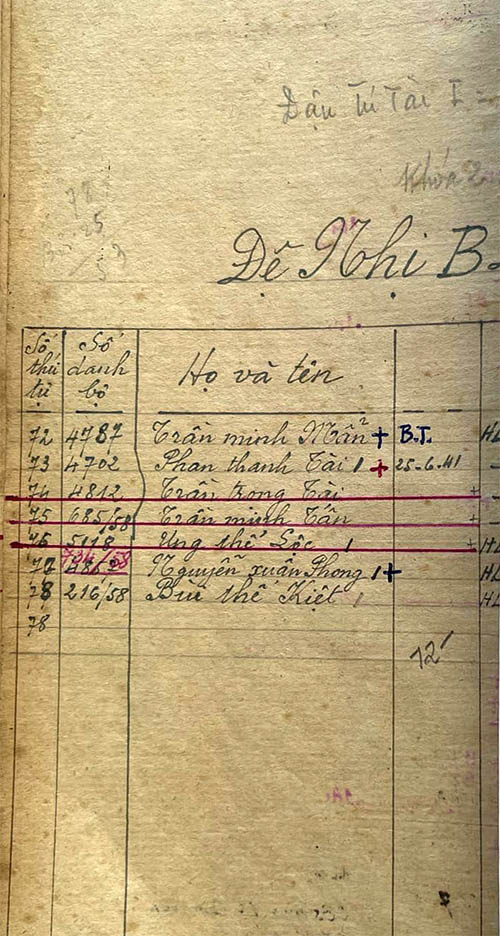 Đậu Tú Tài I
Khóa 2
Đệ Nhị B
Số thứ tự Số danh bộ Họ và tên
72 4787 Trần minh Mẫn² + B.T. HL
73 4702 Phan thanh Tài 1 + 25-6-41
74 4812 Trần trọng Tài +
75 685/58 Trần minh Tân +
76 5118 Ưng thế Lộc 1 + HL
77 Nguyễn xuân Phong 1 + HL
78 216/58 Bùi thế Kiệt 1 HL
78
12